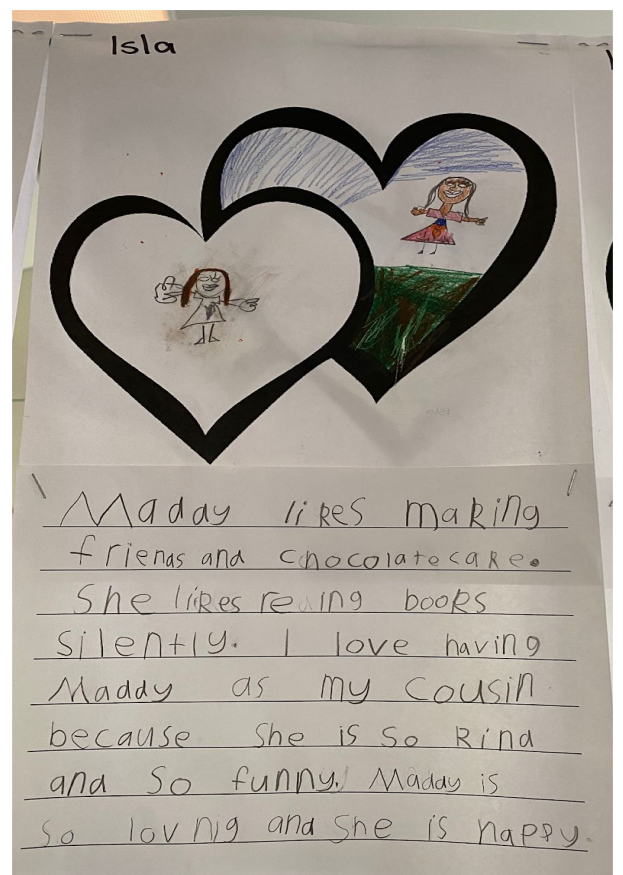 Isla
Maddy likes making
friends and chocolate cake.
She likes reing books
silently. I love having
Maddy as my cousin
because she is so kind
and so funny. Maddy is
so lovnig and she is happy.